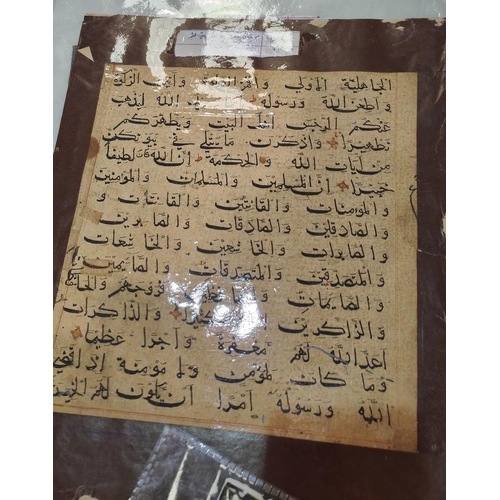 الجاهلية الاولى واقمن الصلوة واتين الزكوة
واطعن الله ورسوله يد الله ليذهب
عنكم الرجس اهل البيت ويطهركم
تطهيرا واذكرن ما يتلى في بيوتكن
من ايات الله والحكمة ان الله لطيفا
خبيرا ان المسلمين والمسلمات والمؤمنين
والمؤمنات والقانتين والقانتات و
والصادقين والصادقات والصابرين
والصابرات والخاشعين والخاشعات
والمتصدقين والمتصدقات والصايمين
والصايمات فروجهم والحا
والزاكرين كثيرا والذاكرات
اعد الله لهم مغفرة واجرا عظيما
وما كان لمؤمن ولا مؤمنة اذا قضى
الله ورسوله امرا ان يكون لهم الخيرة